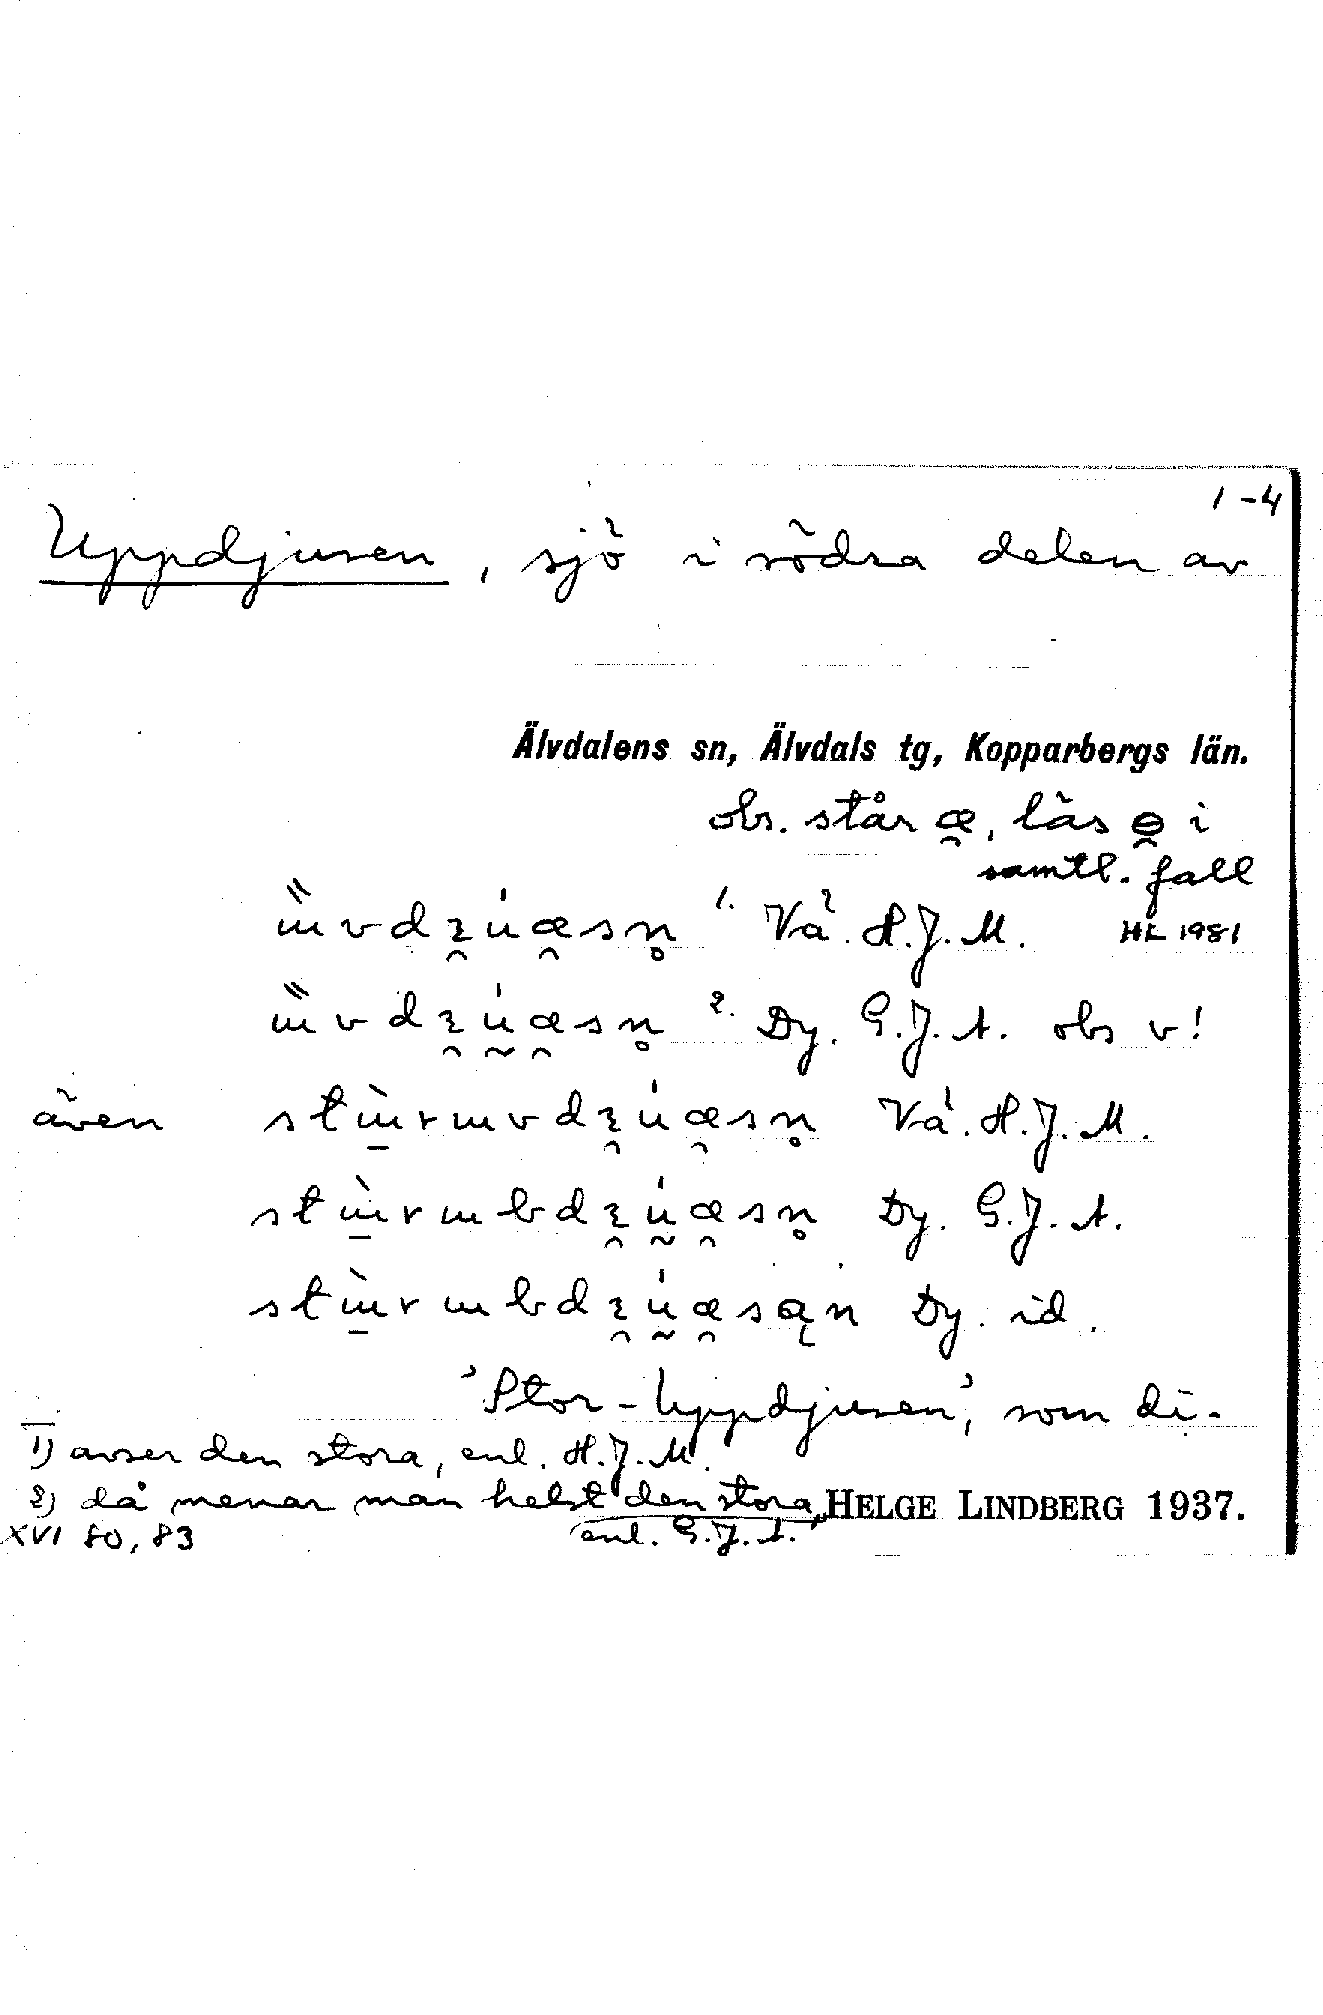 1-4
Uppdjusen, sjö i södra delen av
Älvdalens sn, Älvdals tg, Kopparbergs län.
obs. står æ̯, läs ɵ̯ i
samtl. fall
ɯ̏vdʐ̯úæ̯sn̥ 1. Vå. H.J.M. HL 1981
ɯ̏vdʐ̯ṵ́æ̯sn̥ 2. Dy. G.J.A. obs v!
även stɯ̱̀rɯvdʐ̯úæ̯sn̥ Vå. H.J.M.
stɯ̱̀rɯbdʐ̯ṵ́æ̯sn̥ Dy. G.J.A.
stɯ̱̀rɯbdʐ̯ṵ́æ̯sąn Dy. id.
'Stor-Uppdjusen', som di-
1) avser den stora, enl. H.J.M.
2) då menar man helst den stora, HELGE LINDBERG 1937.
enl. G.J.A.
XVI 80, 83